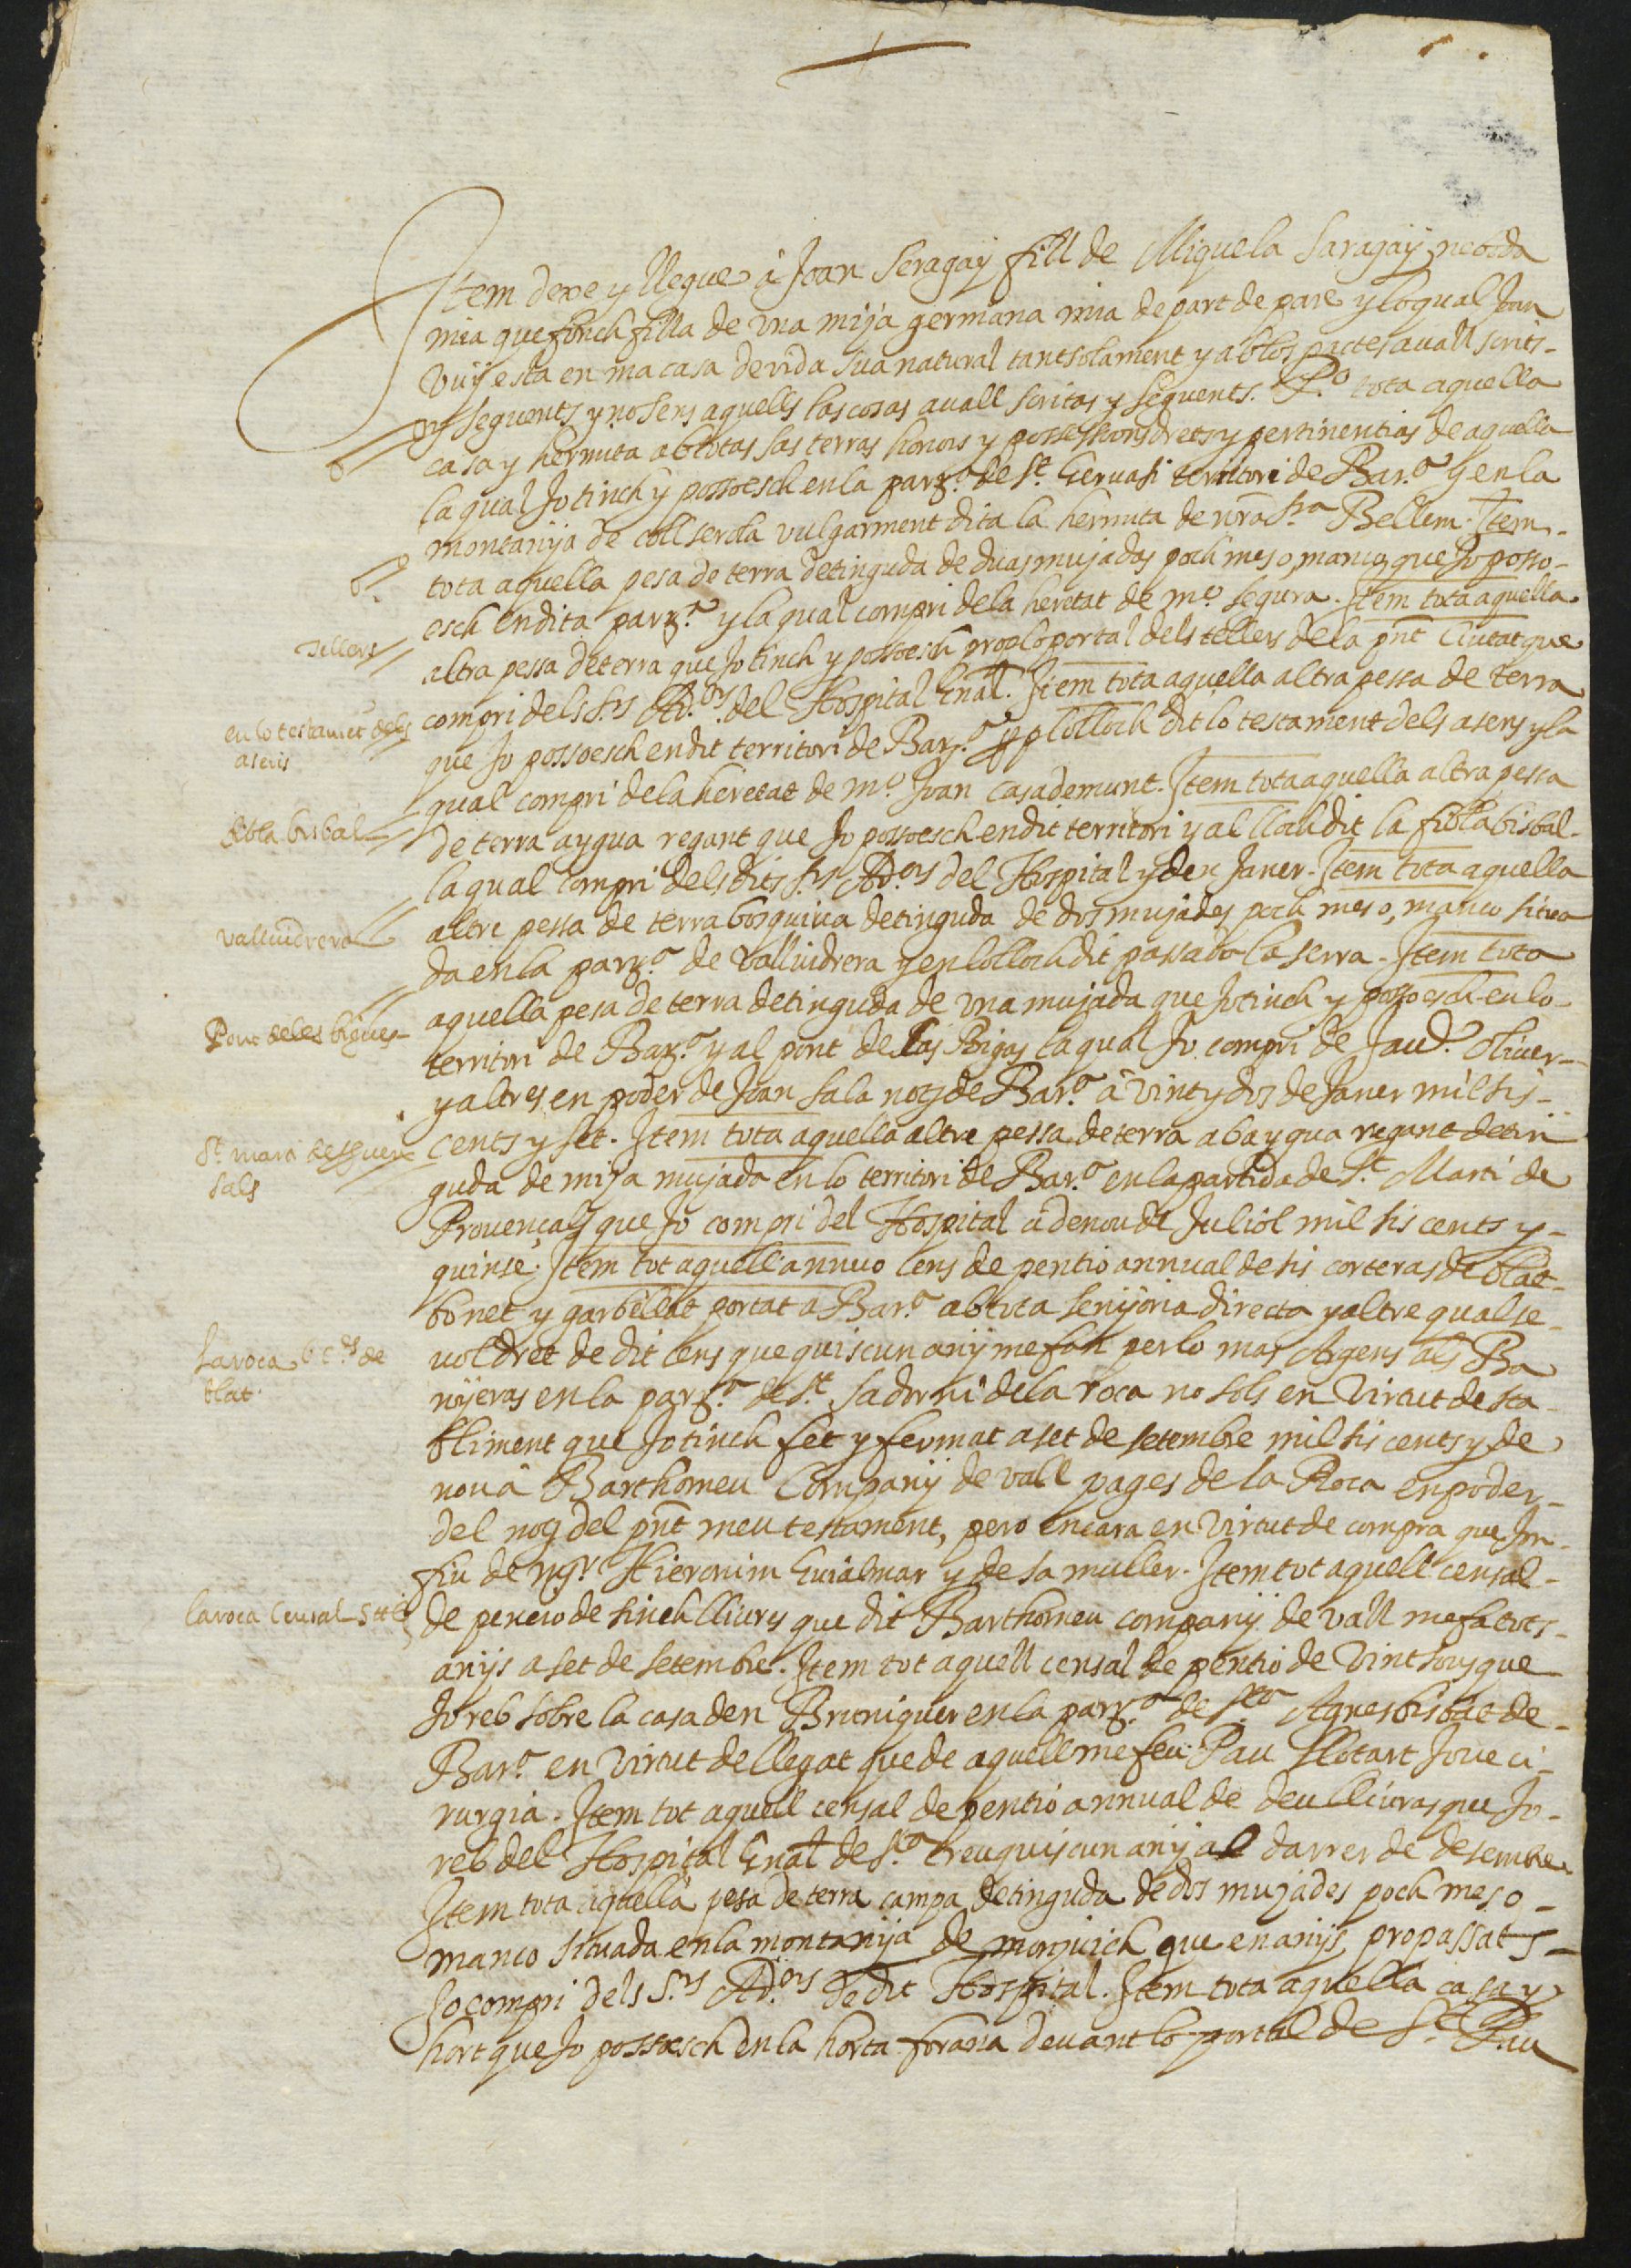 Item dexe y llegue â Joan Seragay fill de Miquela Saragay neboda
mia que fonch filla de una mija germana mia de part de pare y lo qual Joan
vuy esta en ma casa de vida sua natural tantsolament y ab los pactes avall scrits
y seguents y no sens aquells las cosas avall scritas y seguents. P.º tota aquella
casa y hermita ab totas las terras honors y possessions drets y pertinentias de aquella
la qual Jo tinch y possoesch en la parr.ª de S.t Gervasi territori de Bar.ª y en la
montanya de collserola vulgarment dita la hermita de nr̃a S.ra Bellem. Item
tota aquella pesa de terra detinguda de duas mujadas poch mes o, manco, que Jo posso-
esch en dita parr.ª y la qual compri de la heretat de m.º Segura. Item tota aquella
Tellers
altra pessa de terra que Jo tinch y possoesch prop lo portal dels tellers de la pñt Ciutat que
compri dels S.rs Ad.ors del Hospital Gñal. Item tota aquella altra pessa de terra
en lo testament dels
asens
que Jo possoesch en dit territori de Bar.ª y lo lloch dit lo testament dels asens y la
qual compri de la heretat de m.º Joan Casademunt. Item tota aquella altra pessa
fibla bisbal
de terra aygua regant que Jo possoesch en dit territori y al lloch dit la fibla bisbal
la qual compri dels dits S.rs Ad.ors del Hospital y den Janer. Item tota aquella
altre pessa de terra bosquina detinguda de dos mujades poch mes o, manco situa
vallvidrera
da en la parr.ª de Vallvidrera y en lo lloch dit passada la serra. Item tota
aquella pesa de terra detinguda de una mujada que Jo tinch y possoesch en lo
Pont de les bigues
territori de Bar.ª y al pont de las Bigas la qual Jo compri de Jaud. Oliver
y altres en poder de Joan Sala not̃ de Bar.ª â vint y dos de Janer mil sis
cents y set. Item tota aquella altre pessa de terra ab aygua regant detin
S.t marti de Proven
sals
guda de mija mujada en lo territori de Bar.ª en la partida de S.t Marti de
Provençals que Jo compri del Hospital a denou de Juliol mil sis cents y
quinse. Item tot aquell annuo cens de pentio annual de sis corteras de blat
bonet y garbellat portat a Bar.ª ab tota senyoria directa y altre qualse
La roca 6 c.rs de
blat.
vol dret de dit cens que quiscun any me fan per lo mas Argens als Ba
nyeras en la parr.ª de S.t Sadorni de la roca no sols en virtut de sta
bliment que Jo tinch fet y fermat a set de setembre mil sis cents y de
nou â Barthomeu Company de vall pages de la Roca en poder
del not̃ del pñt meu testament, pero encara en virtut de compra que Jo
fiu de m.r Hieronim Gualmar y de sa muller. Item tot aquell censal
la roca Censal 5 ll
de pencio de sinch lliures que dit Barthomeu company de vall me fa tots
anys a set de setembre. Item tot aquell censal de pentio de vint sous que
Jo reb sobre la casa den Bruniquer en la parr.ª de S.ta Agnes bisbat de
Bar.ª en virtut de llegat que de aquell me feu Pau Llotart Jove ci
rurgia. Item tot aquell censal de pentio annual de deu lliuras que Jo
reb del Hospital Gñal de S.ta Creu quiscun any al darrer de desembre
Item tota aquella pesa de terra campa detinguda de dos mujades poch mes o
manco situada en la montanya de monjuich que en anys propassats
Jo compri dels S.rs Ad.ors de dit Hospital. Item tota aquella casa y
hort que Jo possoesch en la horta forana devant lo portal de S.t Pau